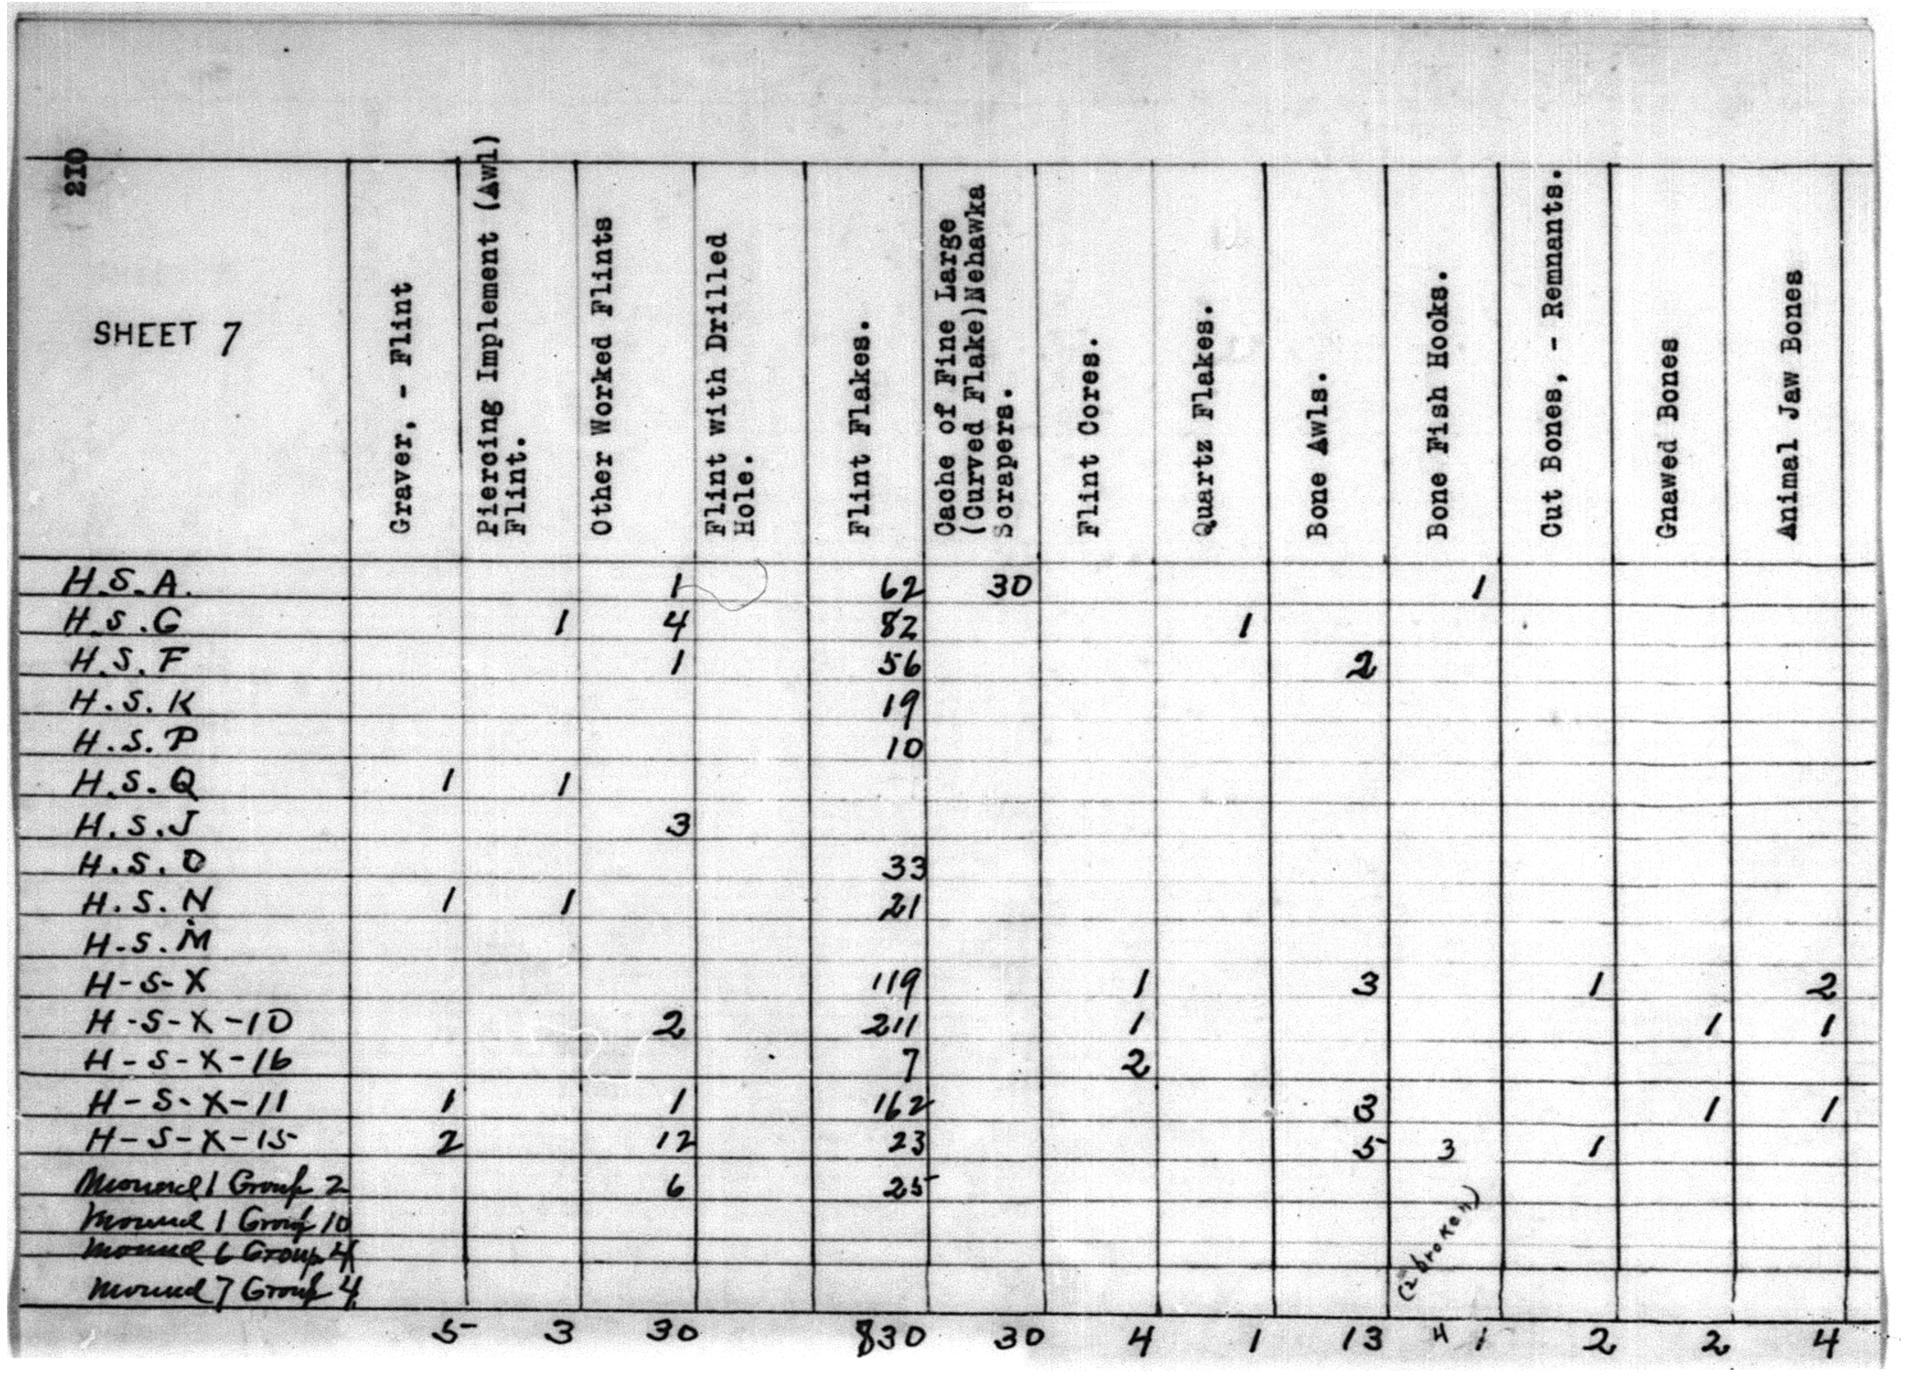 210
SHEET 7
Graver, - Flint
Piercing Implement (Awl)
Flint.
Other Worked Flints
Flint with Drilled
Hole.
Flint Flakes.
Cache of Fine Large
(Curved Flake) Nehawka
Scrapers.
Flint Cores.
Quartz Flakes.
Bone Awls.
Bone Fish Hooks.
Cut Bones, - Remnants.
Gnawed Bones
Animal Jaw Bones
H.S.A. 1 62 30 1
H.S.G 1 4 82 1
H.S.F 1 56 2
H.S.K 19
H.S.P 10
H.S.Q 1 1
H.S.J 3
H.S.O 33
H.S.N 1 1 21
H-S.M
H-S-X 119 1 3 1 2
H-S-X-10 2 211 1 1 1
H-S-X-16 7 2
H-S-X-11 1 1 162 3 1 1
H-S-X-15 2 12 23 5 3 1
Mound 1 Group 2 6 25
Mound 1 Group 10
Mound 6 Group 4
Mound 7 Group 4
(2 broken)
5 3 30 830 30 4 1 13 4 1 2 2 4